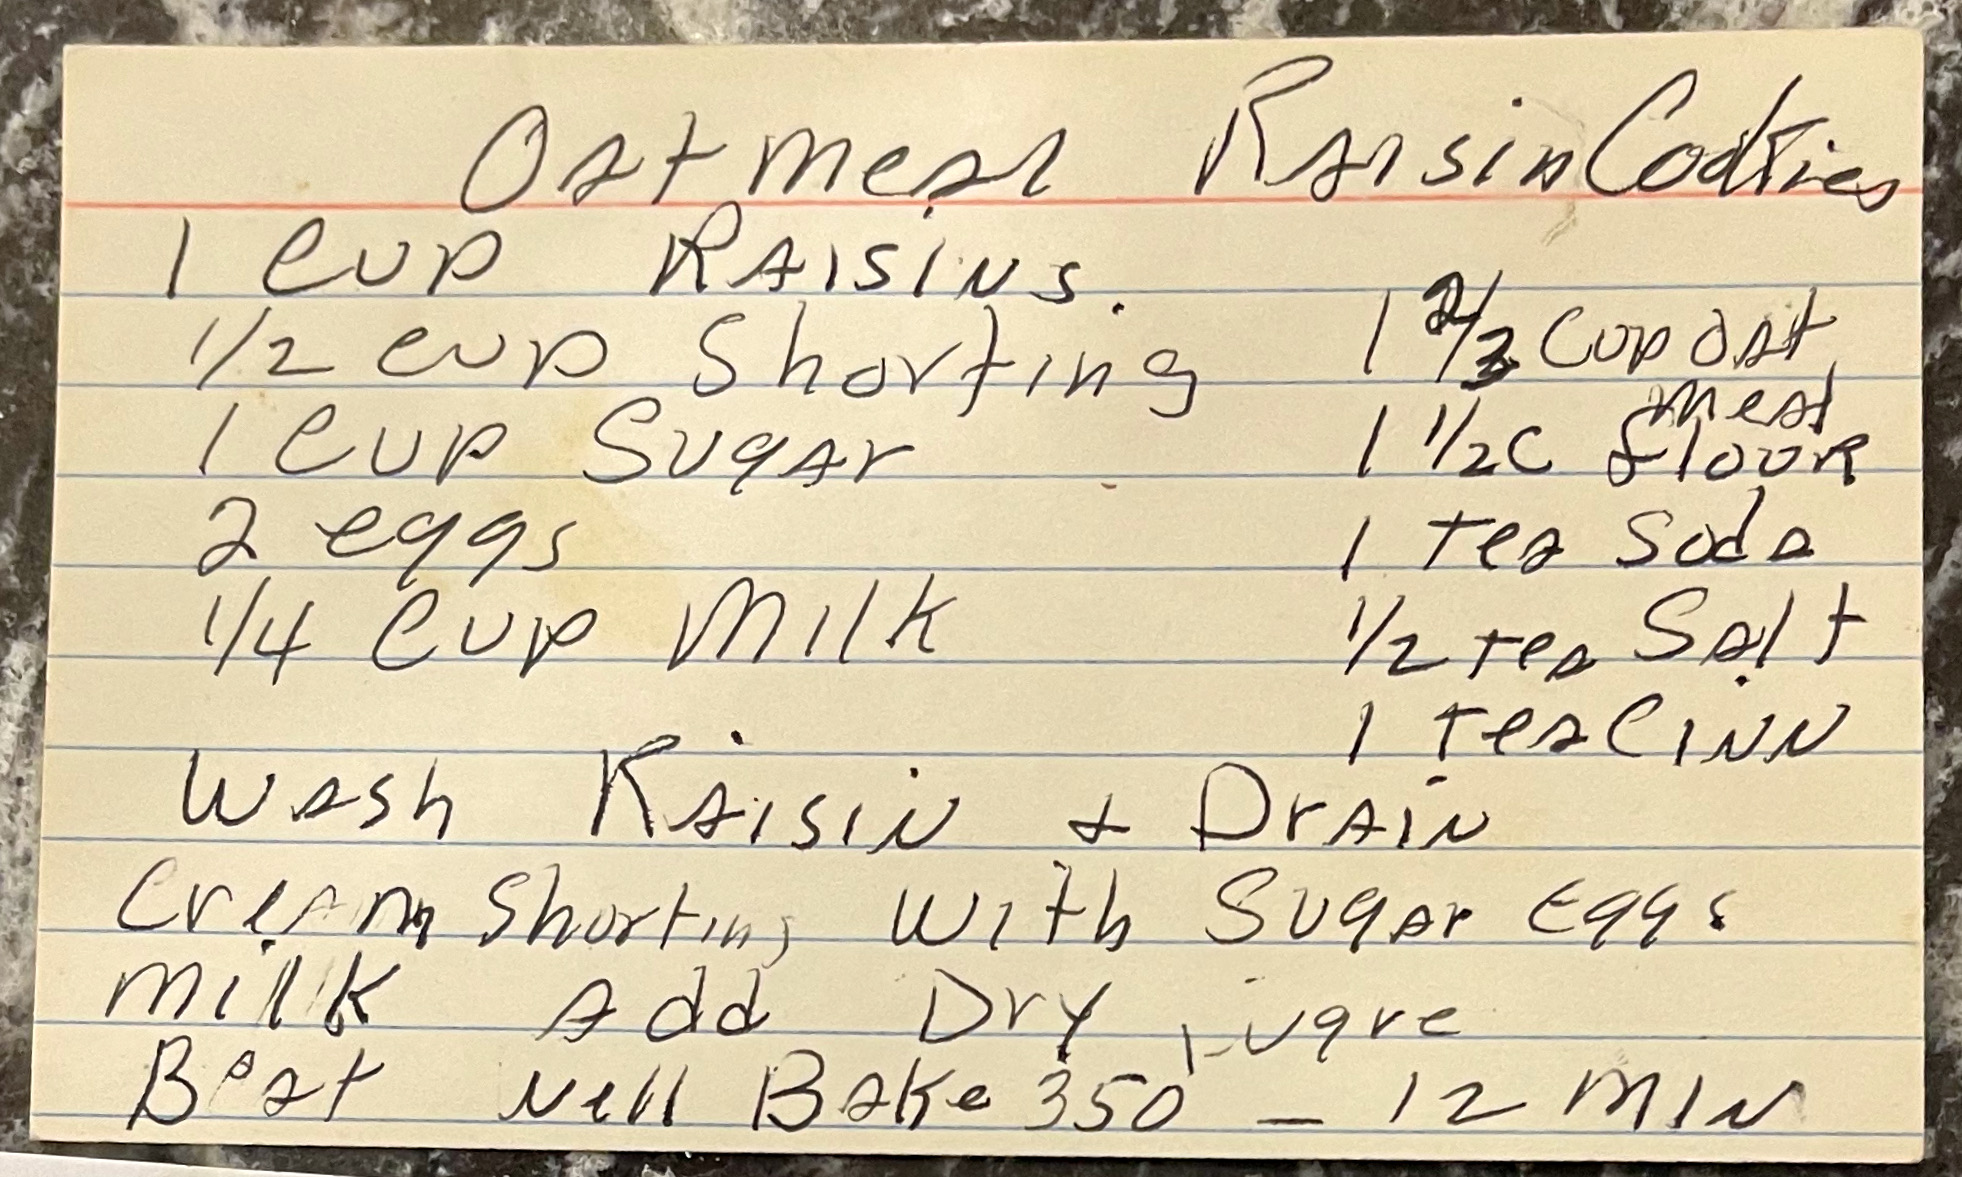 Oatmeal Raisin Cookies
1 Cup Raisins.
1/2 cup Shorting
1 Cup Sugar
2 eggs
1/4 Cup Milk
1 2/3 Cup Oat
meal
1 1/2 C flour
1 tea Soda
1/2 tea Salt
1 tea Cinn
Wash Raisin + Drain
Cream Shorting With Sugar Eggs
Milk Add Dry
Beat Well Bake 350 - 12 Min